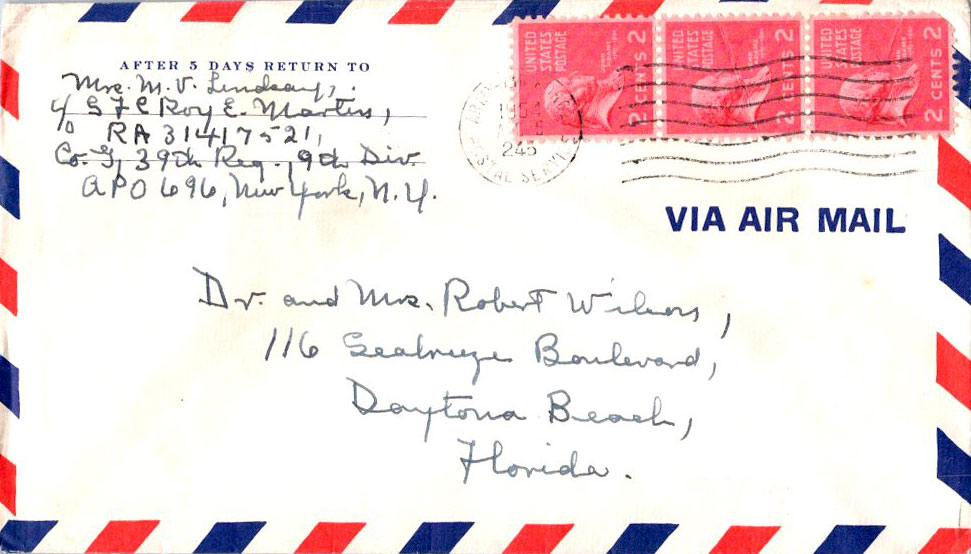 AFTER 5 DAYS RETURN TO
Mrs. M. V. Lindsay,
c/o SFC Roy E. Martin,
RA 31417521,
Co. G, 39th Reg., 9th Div.
APO 696, New York, N.Y.
UNITED STATES POSTAGE 2 CENTS 2
UNITED STATES POSTAGE 2 CENTS 2
UNITED STATES POSTAGE 2 CENTS 2
POSTAL SERVICE
245
VIA AIR MAIL
Dr. and Mrs. Robert Wilson,
116 Seabreeze Boulevard,
Daytona Beach,
Florida.